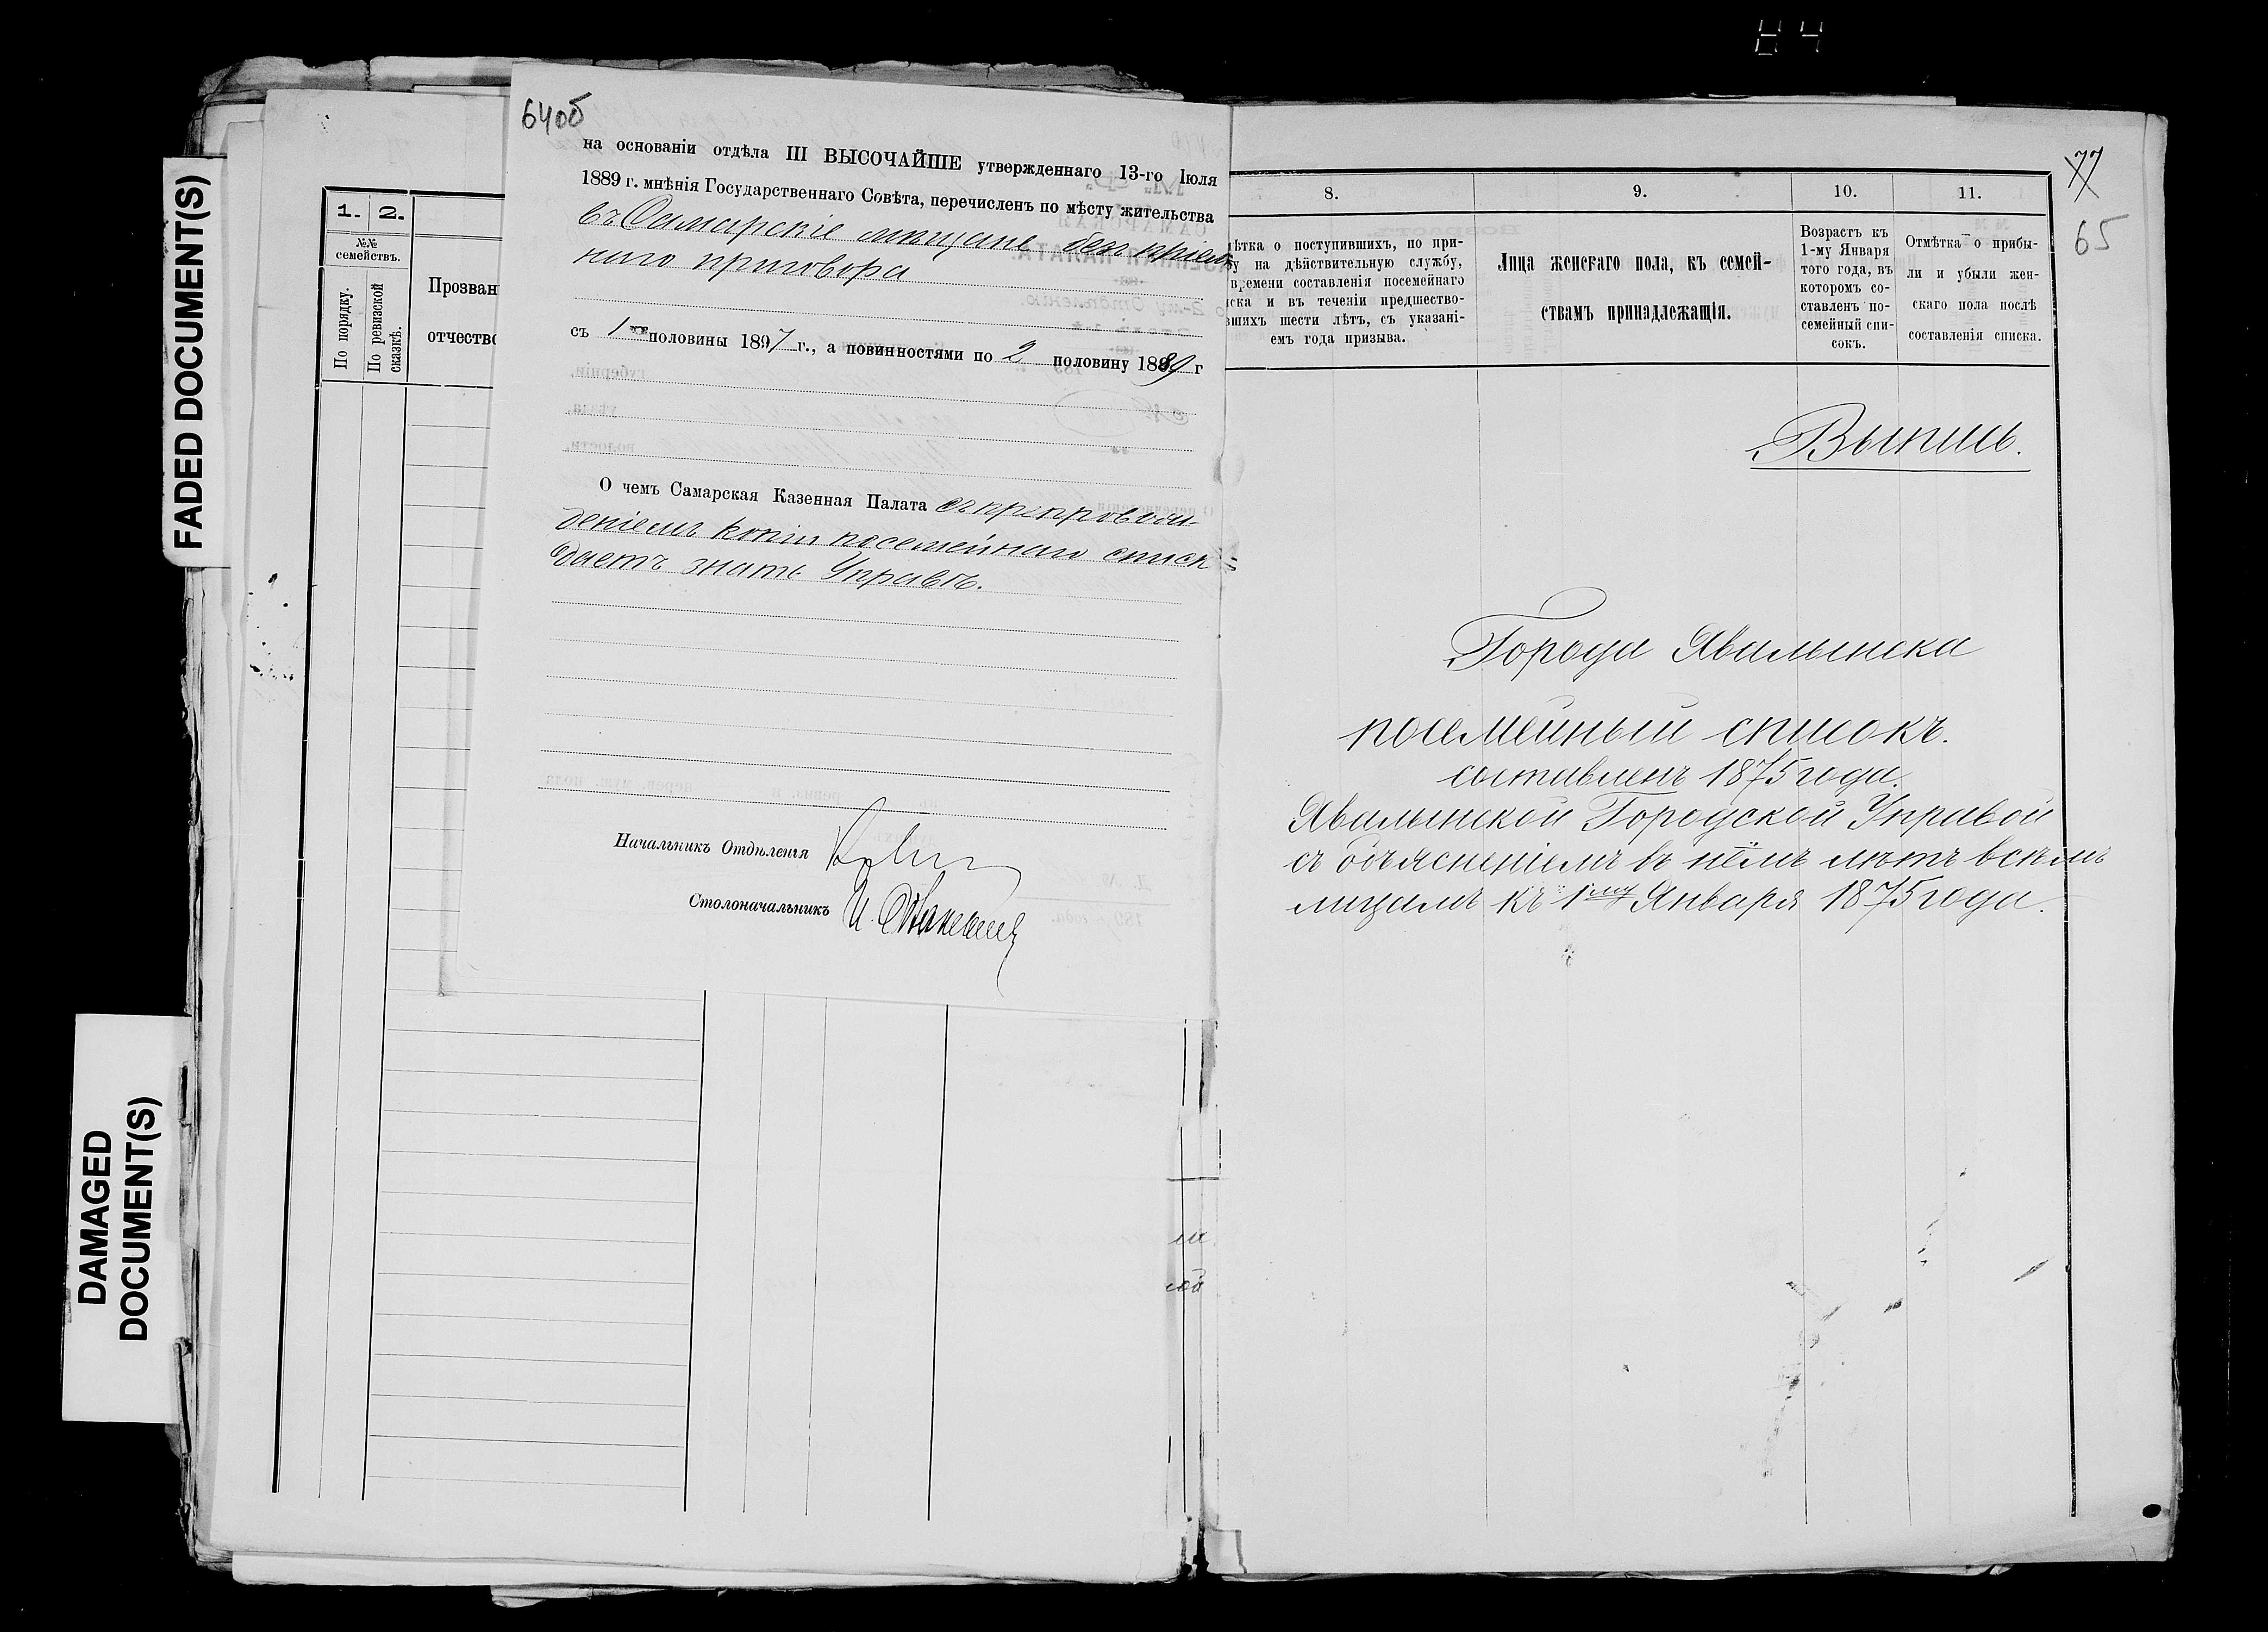 64об
на основаніи отдѣла III ВЫСОЧАЙШЕ утвержденнаго 13-го Іюля
1889 г. мнѣнія Государственнаго Совѣта, перечисленъ по мѣсту жительства
въ Самарскіе мѣщане безъ пріем
наго приговора
съ 1 половины 1897 г., а повинностями по 2 половину 1889 г
О чемъ Самарская Казенная Палата съ препровож-
деніемъ копіи посемейнаго списк
даетъ знать Управѣ.
Начальникъ Отдѣленія
Столоначальникъ И.
1. 2.
№№
семействъ.
По порядку.
По ревизской
сказкѣ.
Прозван
отчество
8. 9. 10. 11.
77
65
ѣтка о поступившихъ, по при-
у на дѣйствительную службу,
времени составленія посемейнаго
ска и въ теченіи предшество-
вшихъ шести лѣтъ, съ указані-
емъ года призыва.
Лица женскаго пола, къ семей-
ствамъ принадлежащія.
Возрастъ къ
1-му Января
того года, въ
которомъ со-
ставленъ по-
семейный спи-
сокъ.
Отмѣтка о прибы-
ли и убыли жен-
скаго пола послѣ
составленія списка.
Выпись.
Города Хвалынска
посемейный списокъ.
составленъ 1875 года.
Хвалынской Городской Управой
съ объясненіемъ въ нёмъ лѣтъ всѣмъ
лицамъ къ 1му Января 1875 года.
FADED DOCUMENT(S)
DAMAGED
DOCUMENT(S)